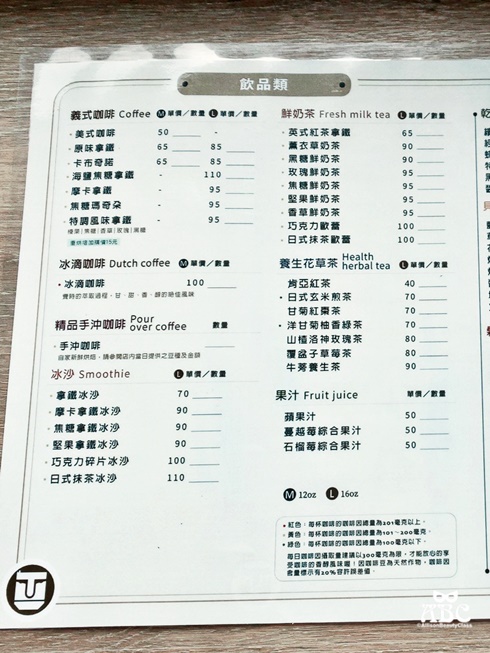 飲品類
義式咖啡 Coffee Ⓜ 單價/數量 Ⓛ 單價/數量
美式咖啡 50 -
原味拿鐵 65 85
卡布奇諾 65 85
海鹽焦糖拿鐵 - 110
摩卡拿鐵 - 95
焦糖瑪奇朵 - 95
特調風味拿鐵 - 95
榛果|焦糖|香草|玫瑰|黑糖
重烘培加購價15元
冰滴咖啡 Dutch coffee Ⓜ 單價/數量
冰滴咖啡 100
費時的萃取過程,甘、甜、香、醇的絕佳風味
精品手沖咖啡 Pour over coffee 數量
手沖咖啡
自家新鮮烘焙,請參閱店內當日提供之豆種及金額
冰沙 Smoothie Ⓛ 單價/數量
拿鐵冰沙 70
摩卡拿鐵冰沙 90
焦糖拿鐵冰沙 90
堅果拿鐵冰沙 90
巧克力碎片冰沙 100
日式抹茶冰沙 110
鮮奶茶 Fresh milk tea Ⓛ 單價/數量
英式紅茶拿鐵 65
薰衣草奶茶 90
黑糖鮮奶茶 90
玫瑰鮮奶茶 95
焦糖鮮奶茶 95
堅果鮮奶茶 95
香草鮮奶茶 95
巧克力歐蕾 100
日式抹茶歐蕾 100
養生花草茶 Health herbal tea Ⓛ 單價/數量
肯亞紅茶 40
日式玄米煎茶 70
甘菊紅棗茶 70
洋甘菊柚香綠茶 70
山楂洛神玫瑰茶 80
覆盆子草莓茶 80
牛蒡養生茶 90
果汁 Fruit juice 單價/數量
蘋果汁 50
蔓越莓綜合果汁 50
石榴莓綜合果汁 50
Ⓜ 12oz Ⓛ 16oz
紅色:每杯咖啡的咖啡因總量為201毫克以上。
黃色:每杯咖啡的咖啡因總量為101~200毫克。
綠色:每杯咖啡的咖啡因總量為100毫克以下。
每日咖啡因攝取量建議以300毫克為限,才能放心的享
受咖啡的香醇風味喔!因咖啡豆為天然作物,咖啡因
含量標示有20%容許誤差值。
ABC
©AllisonBeautyClass